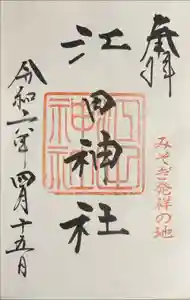 奉拝
江田神社
江田神社
みそぎ発祥の地
令和二年四月十五日